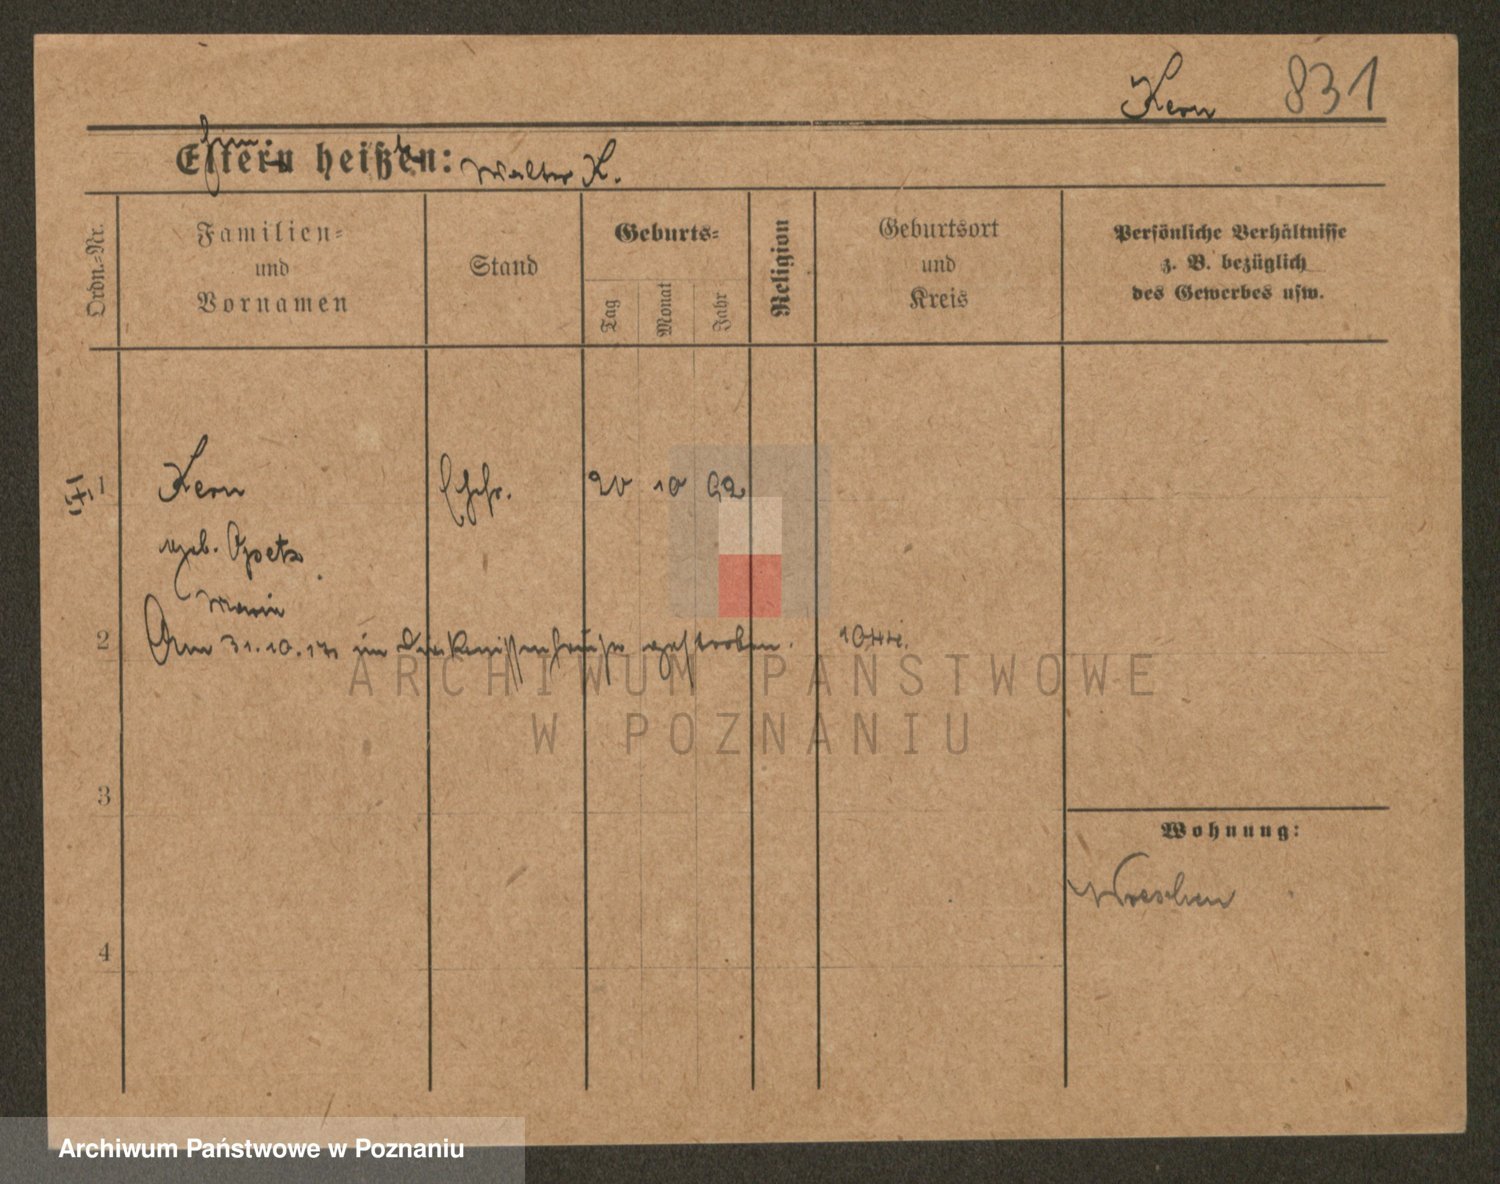 Kern 831
Eltern heißen: Walter K.
Ordn.-Nr.
Familien-
und
Vornamen
Stand
Geburts-
Tag
Monat
Jahr
Religion
Geburtsort
und
Kreis
Persönliche Verhältnisse
z. B. bezüglich
des Gewerbes usw.
1 Kern Ehefr. 20 10 92
geb. Opetz
Maria
2 Am 31.10.13 im Diakonissenhause gestorben.
3
4
Wohnung:
Wreschen
ARCHIWUM PAŃSTWOWE
W POZNANIU
Archiwum Państwowe w Poznaniu